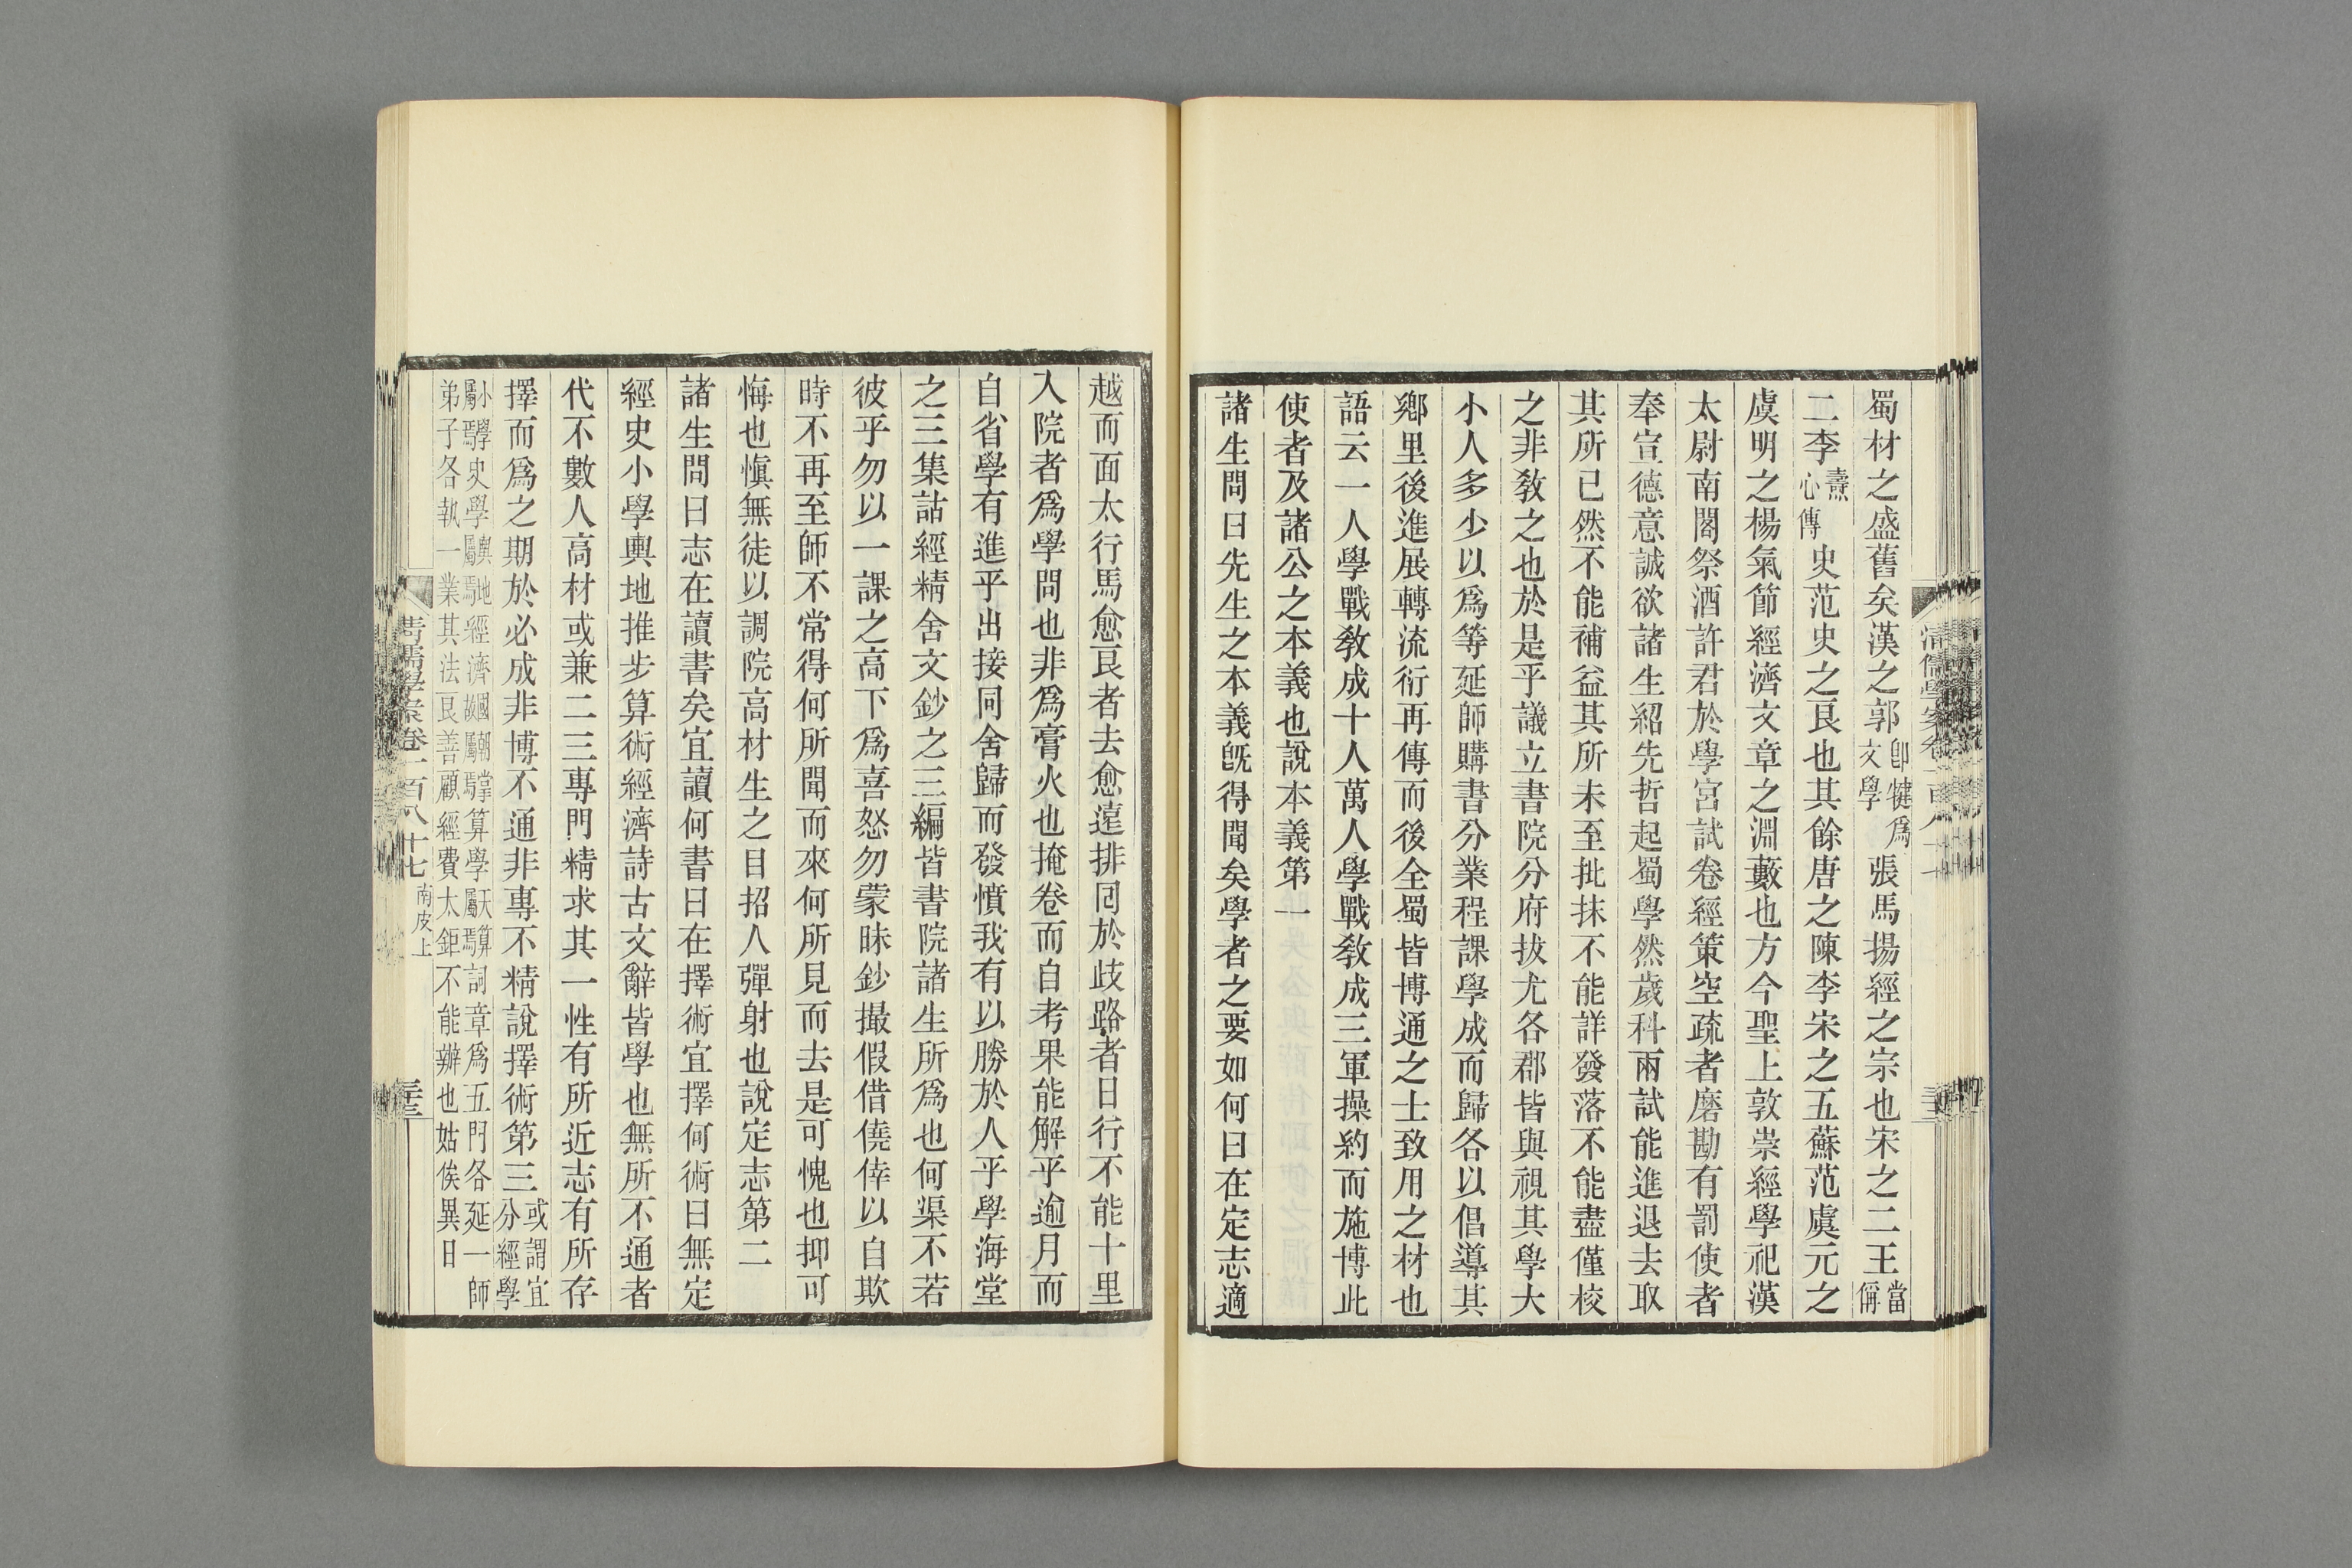 蜀材之盛舊矣漢之郭卽犍爲文學張馬揚經之宗也宋之二王當偁
二李燾心傳史范史之良也其餘唐之陳李宋之五蘇范虞元之
虞明之楊氣節經濟文章之淵藪也方今聖上敦崇經學祀漢
太尉南閣祭酒許君於學宮試卷經策空疏者磨勘有罰使者
奉宣德意誠欲諸生紹先哲起蜀學然歲科兩試能進退去取
其所已然不能補益其所未至批抹不能詳發落不能盡僅校
之非敎之也於是乎議立書院分府拔尤各郡皆與視其學大
小人多少以爲等延師購書分業程課學成而歸各以倡導其
鄉里後進展轉流衍再傳而後全蜀皆博通之士致用之材也
語云一人學戰敎成十人萬人學戰敎成三軍操約而施博此
使者及諸公之本義也說本義第一
諸生問曰先生之本義旣得聞矣學者之要如何曰在定志適
越而面太行馬愈良者去愈遠排回於歧路者日行不能十里
入院者爲學問也非爲膏火也掩卷而自考果能解乎逾月而
自省學有進乎出接同舍歸而發憤我有以勝於人乎學海堂
之三集詁經精舍文鈔之三編皆書院諸生所爲也何渠不若
彼乎勿以一課之高下爲喜怒勿蒙昧鈔撮假借僥倖以自欺
時不再至師不常得何所聞而來何所見而去是可愧也抑可
悔也愼無徒以調院高材生之目招人彈射也說定志第二
諸生問曰志在讀書矣宜讀何書曰在擇術宜擇何術曰無定
經史小學輿地推步算術經濟詩古文辭皆學也無所不通者
代不數人高材或兼二三專門精求其一性有所近志有所存
擇而爲之期於必成非博不通非專不精說擇術第三或謂宜分經學
小學屬焉史學輿地屬焉經濟國朝掌故屬焉算學天算屬焉詞章爲五門各延一師
弟子各執一業其法良善顧經費太鉅不能辦也姑俟異日
清儒學案卷一百八十七 南皮上 三三